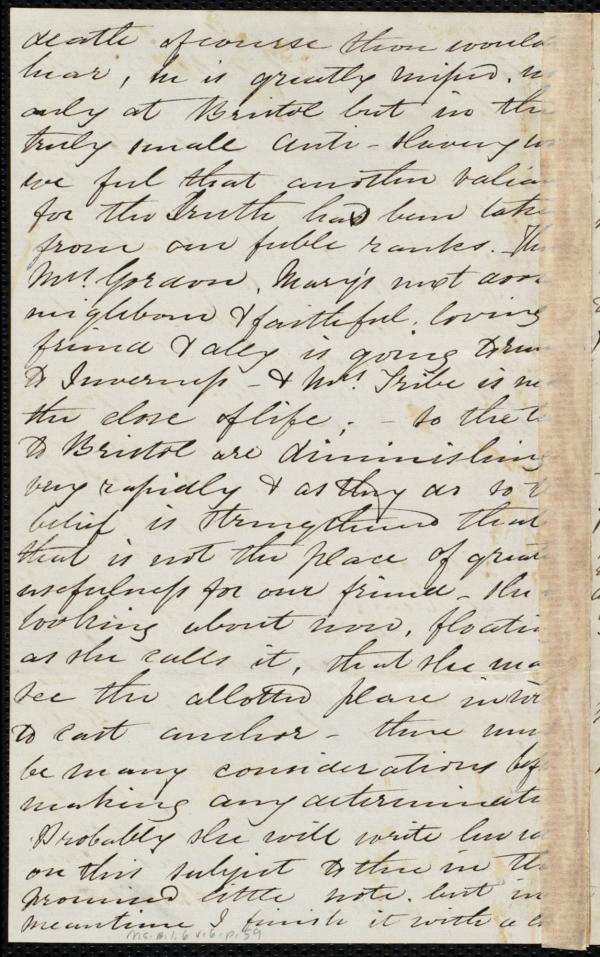 death of course thou would
hear, he is greatly missed, n
only at Bristol but in the
truly small Anti-Slavery w
we feel that another valia
for the Truth has been take
from our feeble ranks. The
Mrs. Gordon, Mary's next door
neighbour & faithful, loving
friend & ally is going to rem
to Inverness - & Mrs. Tribe is ne
the close of life; - so the t
to Bristol are diminishing
very rapidly & as they do so t
belief is strengthened that
that is not the place of great
usefulness for our friend - She
looking about now, floatin
as she calls it, that she ma
see the allotted place in wh
to cast anchor - there mu
be many considerations bef
making any determinati
Probably she will write
on this subject to thee in th
promised little note, but in
meantime I finish it with a
Ms.A.1.6 v.6 p.59